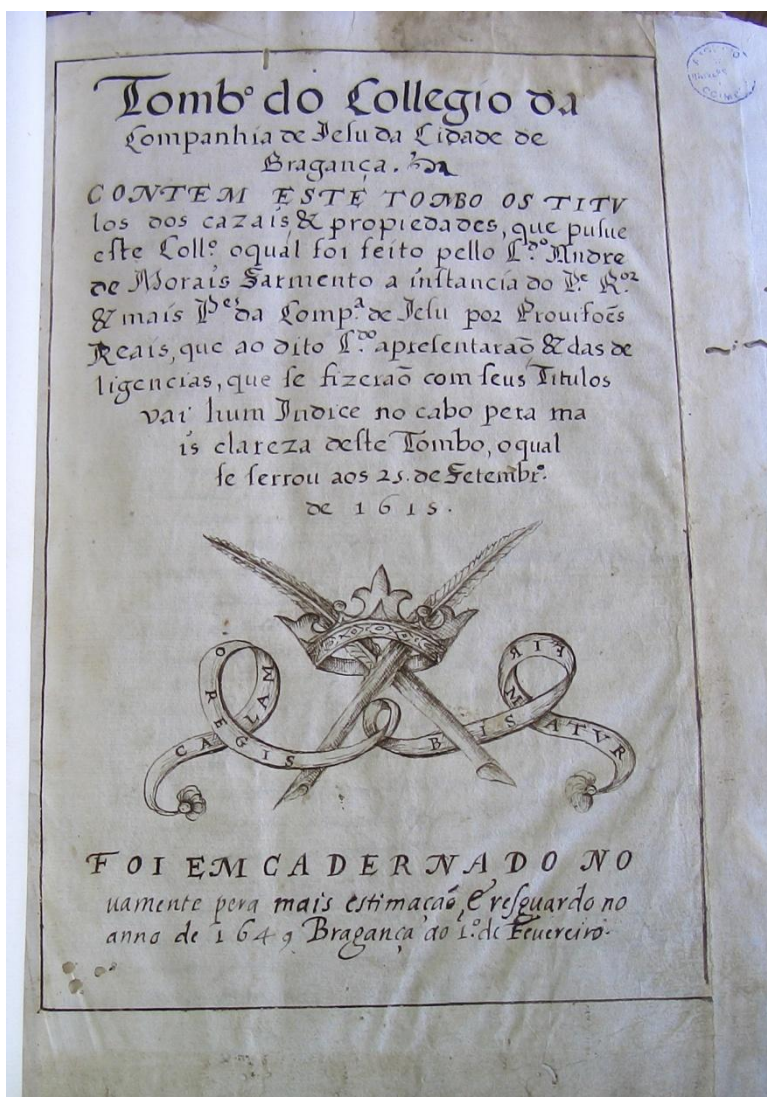 Tombº do Collegio da
Companhia de Jesu da Cidade de
Bragança.
CONTEM ESTE TOMBO OS TITV
los dos cazais, & propiedades, que pusue
este Collº. oqual foi feito pello L.do Andre
de Morais Sarmento a instancia do P.e R.or
& mais P.es da Comp.a de Jesu por Prouisoẽs
Reais, que ao dito L.do apresentaraõ & das de
ligencias, que se fizeraõ com seus Titulos
vai hum Indice no cabo pera ma
is clareza deste Tombo, oqual
se serrou aos 25. de Setembrº.
de 1615.
CALAMO REGIS BIS FIRMATVR
FOI EMCADERNADO NO
uamente pera mais estimação, & resguardo no
anno de 1649 Bragança ao 1º. de Feuereiro.